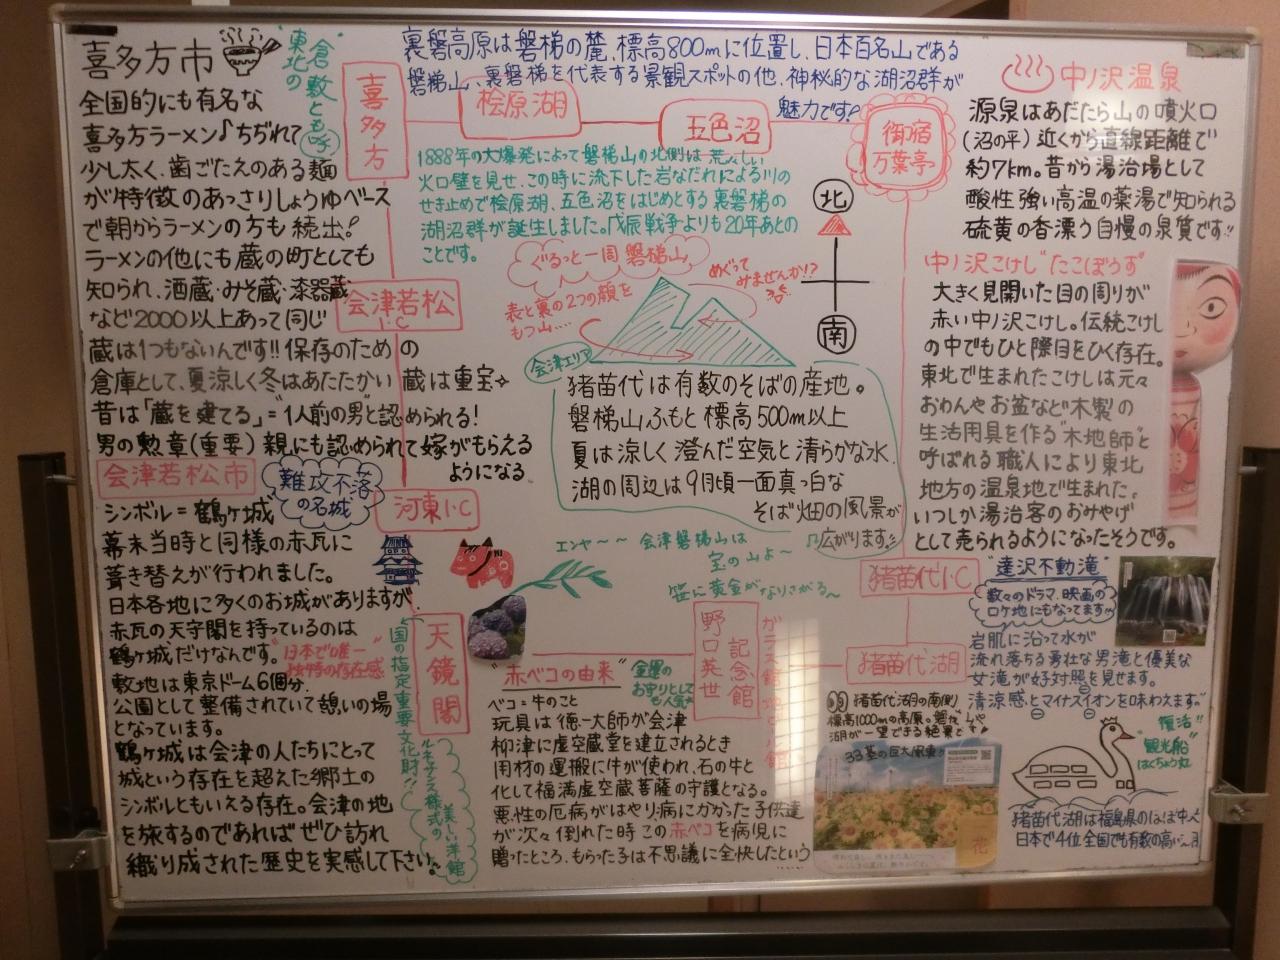 喜多方市
全国的にも有名な
喜多方ラーメン♪ちぢれて
少し太く、歯ごたえのある麺
が特徴のあっさりしょうゆベース
で朝からラーメンの方も続出!
ラーメンの他にも蔵の町としても
知られ、酒蔵・みそ蔵・漆器蔵
など2000以上あって同じ
蔵は1つもないんです!!保存のための
倉庫として、夏涼しく冬はあたたかい 蔵は重宝
昔は「蔵を建てる」="1人前の男"と認められる!
男の勲章(重要) 親にも認められて嫁がもらえる
ようになる
東北の
"倉敷とも呼ぶ"
喜多方
桧原湖
五色沼
御宿
万葉亭
会津若松
I・C
河東I・C
裏磐高原は磐梯の麓、標高800mに位置し、日本百名山である
磐梯山、裏磐梯を代表する景観スポットの他、神秘的な湖沼群が
魅力です?
1888年の大爆発によって磐梯山の北側は荒々しい
火口壁を見せ、この時に流下した岩なだれによる川の
せき止めで桧原湖、五色沼をはじめとする裏磐梯の
湖沼群が誕生しました。戊辰戦争よりも20年あとの
ことです。
ぐるっと一周磐梯山
めぐって
みませんか!?
表と裏の2つの顔を
もつ山....
北
南
会津エリア
猪苗代は有数のそばの産地。
磐梯山ふもと標高500m以上
夏は涼しく澄んだ空気と清らかな水、
湖の周辺は9月頃一面真っ白な
そば畑の風景が
広がります。!!
中ノ沢温泉
源泉はあだたら山の噴火口
(沼の平)近くから直線距離で
約7km。昔から湯治場として
酸性強い高温の薬湯で知られる
硫黄の香漂う自慢の泉質です!!
中ノ沢こけし"たこぼうず"
大きく見開いた目の周りが
赤い中ノ沢こけし。伝統こけし
の中でもひと際目をひく存在。
東北で生まれたこけしは元々
おわんやお盆など木製の
生活用具を作る"木地師"と
呼ばれる職人により東北
地方の温泉地で生まれた。
いつしか湯治客のおみやげ
として売られるようになったそうです。
会津若松市
難攻不落
の名城
シンボル=鶴ヶ城
幕末当時と同様の赤瓦に
葺き替えが行われました。
日本各地に多くのお城がありますが、
赤瓦の天守閣を持っているのは
鶴ヶ城だけなんです。
"日本で唯一"
独特の存在感
敷地は東京ドーム6個分、
公園として整備されていて憩いの場
となっています。
鶴ヶ城は会津の人たちにとって
城という存在を超えた郷土の
シンボルともいえる存在。会津の地
を旅するのであればぜひ訪れ
織り成された歴史を実感して下さい。
天鏡閣
国の指定重要文化財!!
ルネサンス様式の
美しい洋館
エンヤ〜〜 会津磐梯山は
宝の山よ〜
笹に黄金がなりさがる〜
"赤ベコの由来"
金運の
お守りとして
も人気
ベコ=牛のこと
玩具は徳一大師が会津
柳津に虚空蔵堂を建立されるとき
用材の運搬に牛が使われ、石の牛と
化して福満虚空蔵菩薩の守護となる。
悪性の厄病がはやり、病にかかった子供達
が次々倒れた時この赤ベコを病児に
贈ったところ、もらった子は不思議に全快したという
野口英世
記念館
猪苗代I・C
猪苗代湖
猪苗代湖の南側
標高1000mの高原。
湖が一望できる絶景
33基の巨大風車
花
"達沢不動滝"
数々のドラマ、映画の
ロケ地にもなってます
岩肌に沿って水が
流れ落ちる勇壮な男滝と優美な
女滝が好対照を見せます。
清涼感とマイナスイオンを味わえます"
復活!!
"観光船"
はくちょう丸
猪苗代湖は福島県のほぼ中央
日本で4位全国でも有数の高い